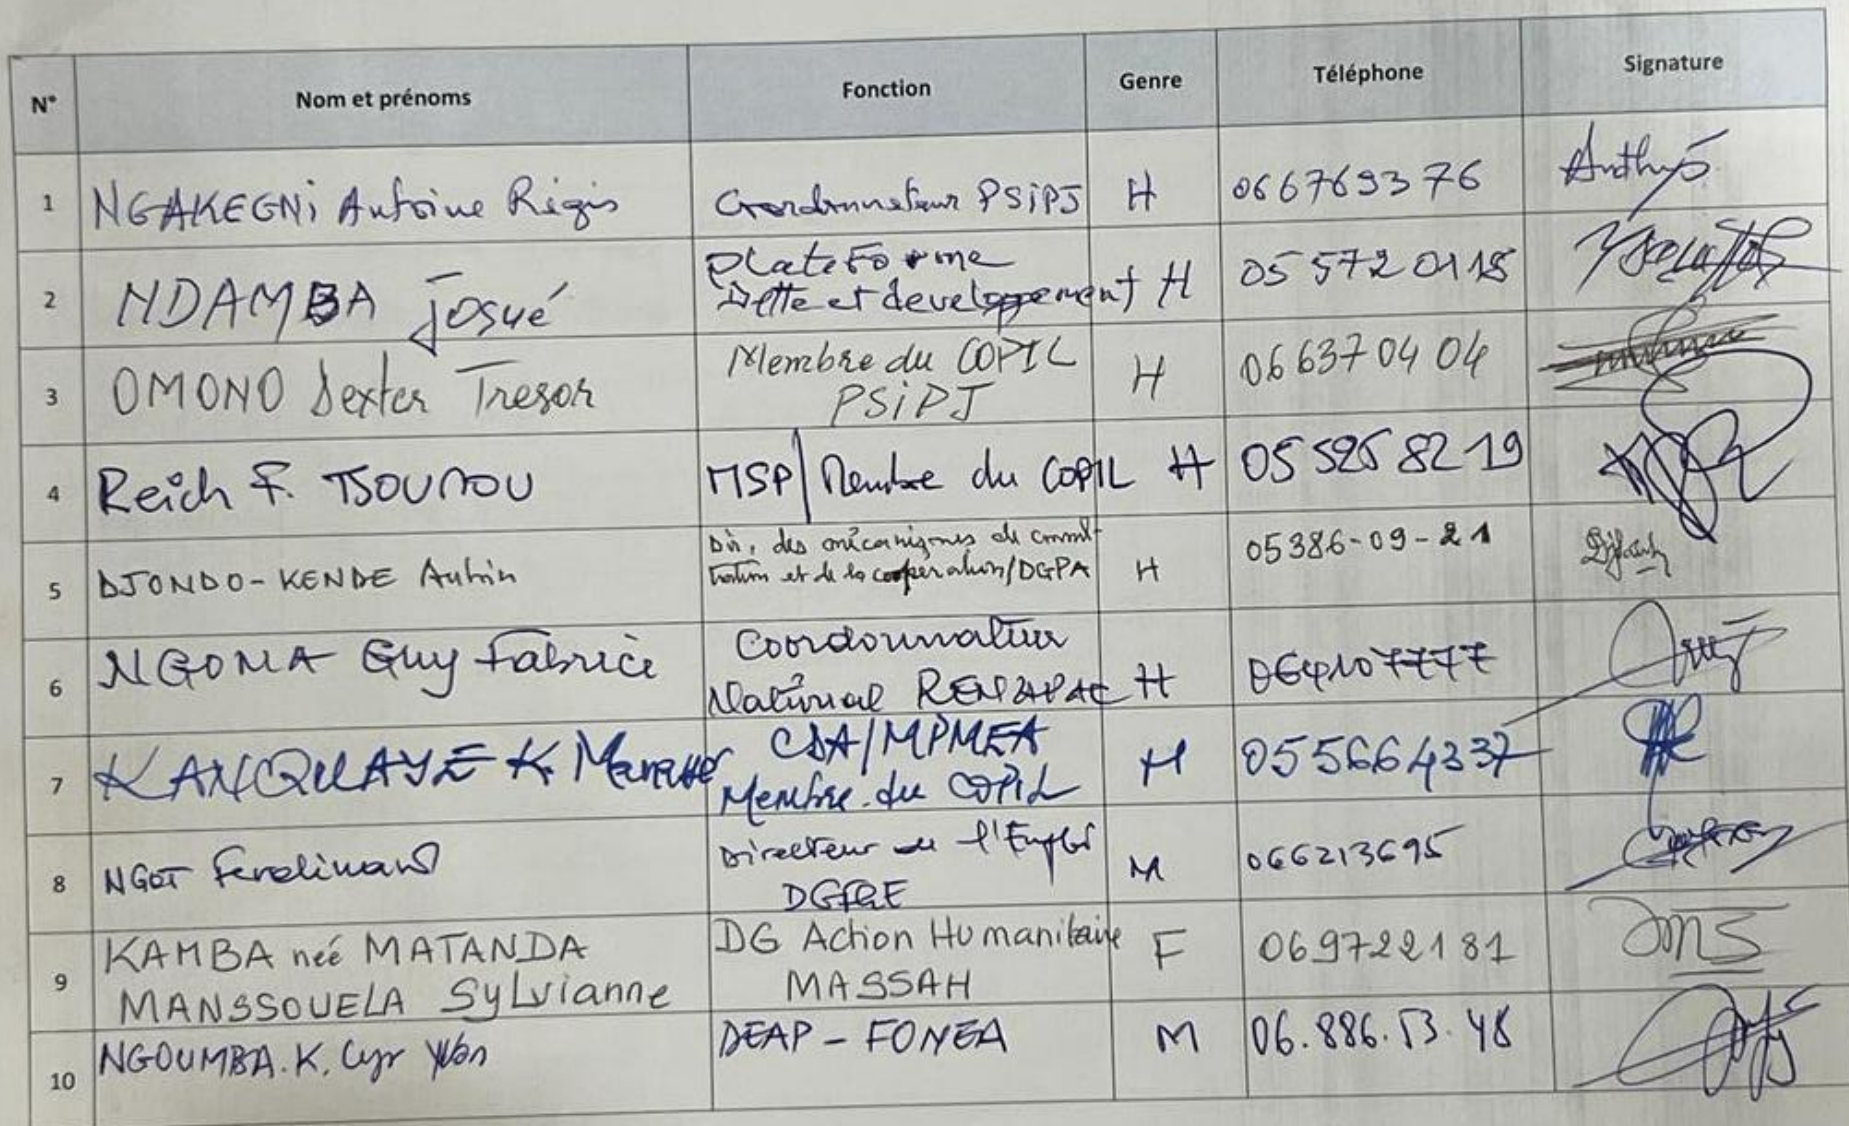 N° Nom et prénoms Fonction Genre Téléphone Signature
1 NGAKEGNI Antoine Régis Coordonnateur PSIPJ H 066769376
2 NDAMBA Josué Plateforme Dette et developpement H 05 572 0118
3 OMONO Dexter Tresor Membre du COPIL PSIPJ H 06 637 04 04
4 Reich F. TSOUMOU MSP/Membre du COPIL H 05 526 82 19
5 DJONDO-KENDE Aubin Dir. des mécanismes de et de la cooperation/DGPA H 05386-09-21
6 NGOMA Guy Fabrice Coordonnateur National H
7 K. CDA/MPMEA Membre du COPIL H 055664337
8 NGOT Ferdinand Directeur de l'Emploi M 066213695
9 KAMBA née MATANDA MANSSOUELA Sylvianne DG Action Humanitaire MASSAH F 069722181
10 NGOUMBA.K. Cyr Yvon DEAP - FONEA M 06.886.53.48